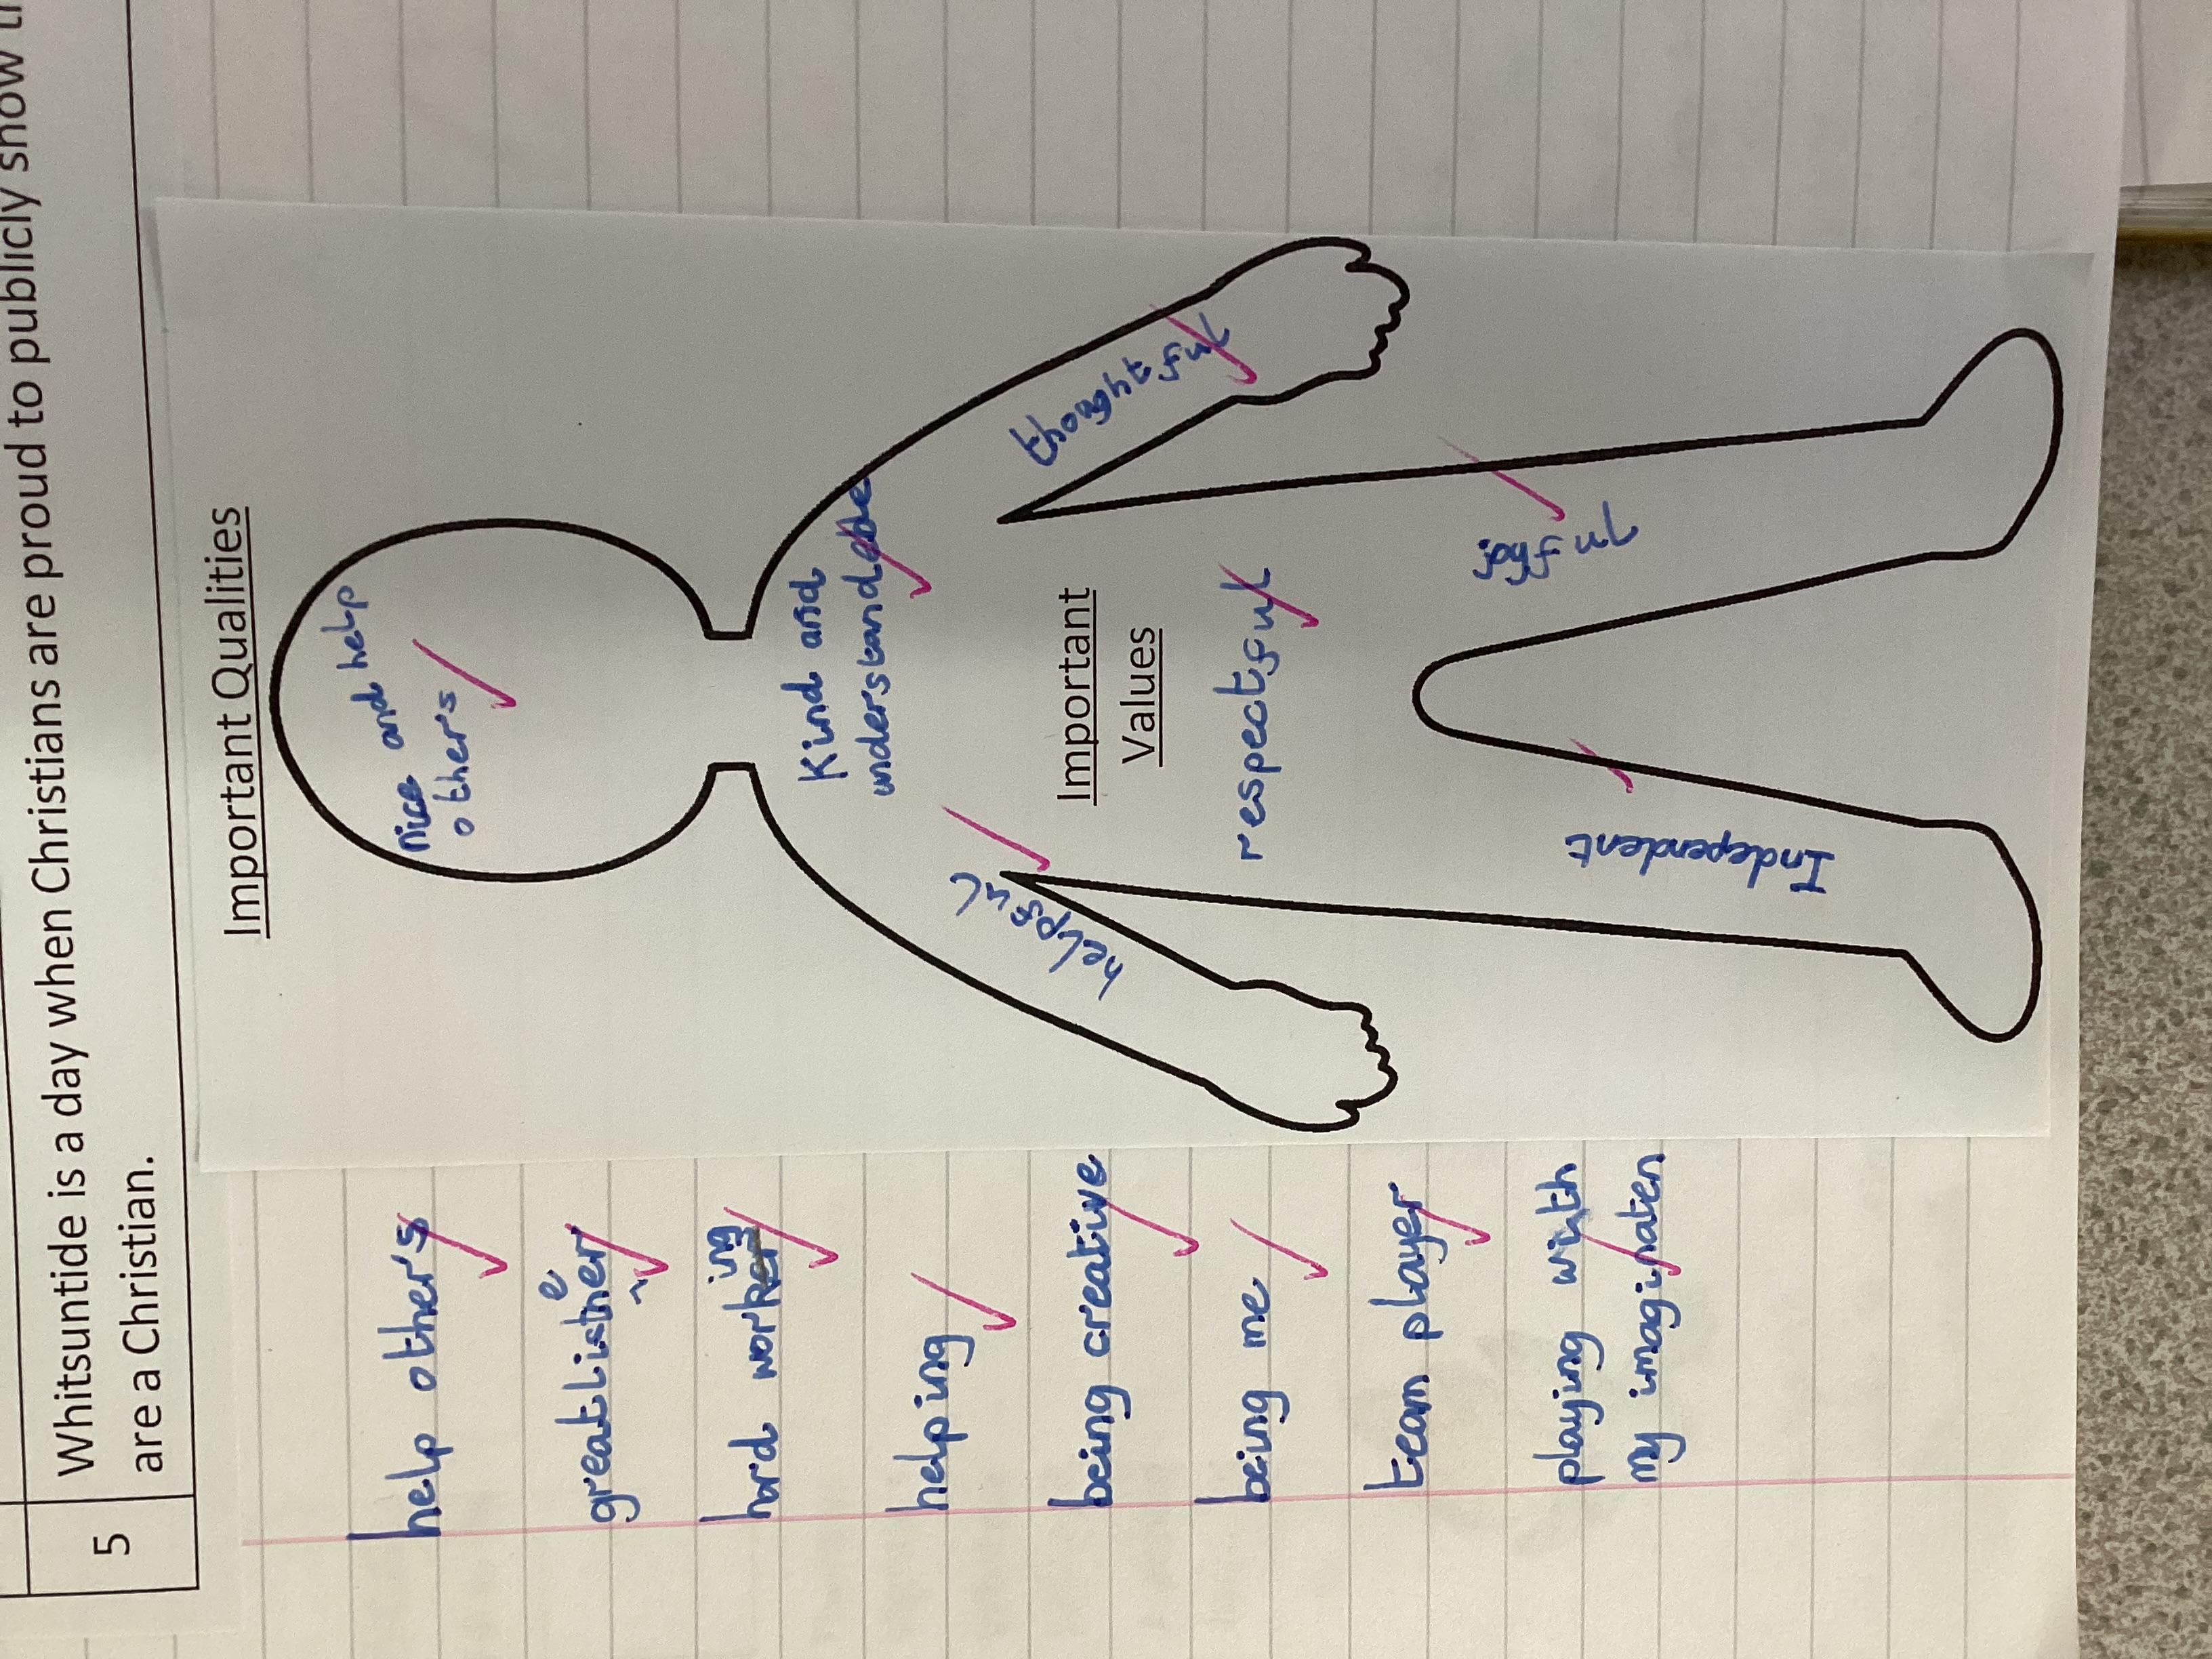 5
Whitsuntide is a day when Christians are proud to publicly show
are a Christian.
Important Qualities
nice and help
others
Kind and
understandable
thoughtful
helpful
Important
Values
respectful
joyful
Independent
help others
great listener
hard working
helping
being creative
being me
team player
playing with
my imaginaten